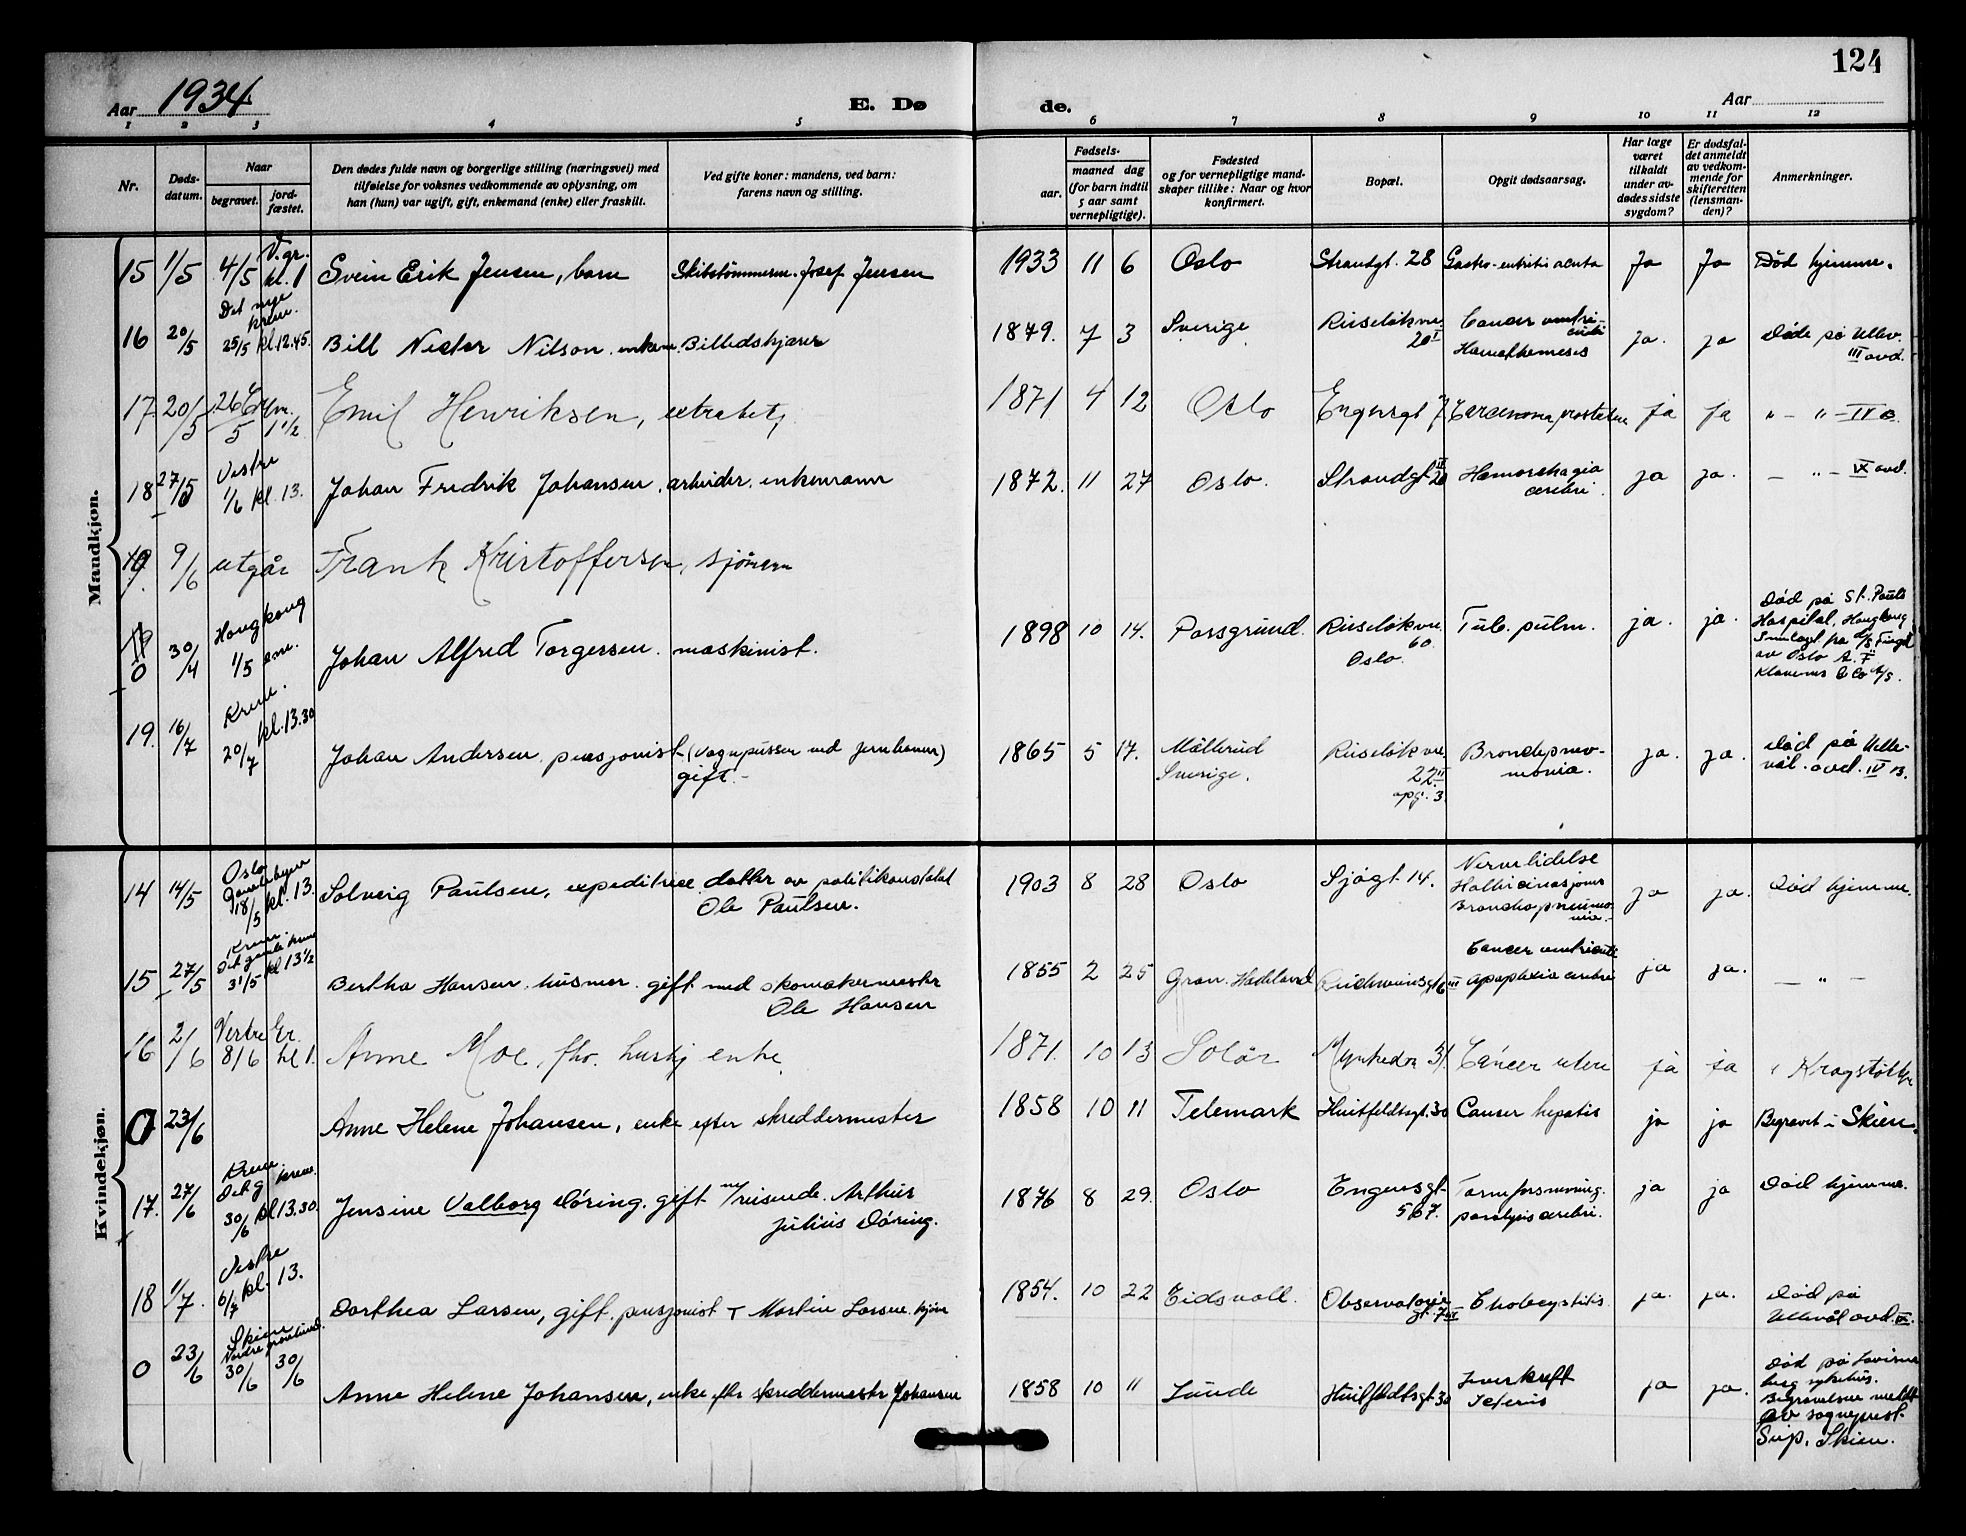 124
Aar 1934
E. Dø de.
Aar
1 2 3 4 5 6 7 8 9 10 11 12
Nr.
Døds-
datum.
Naar
begravet.
jord-
fæstet.
Den dødes fulde navn og borgerlige stilling (næringsvei) med
tilføielse for voksnes vedkommende av oplysning, om
han (hun) var ugift, gift, enkemand (enke) eller fraskilt.
Ved gifte koner: mandens, ved barn:
farens navn og stilling.
Fødsels-
aar.
maaned dag
(for barn indtil
5 aar samt
vernepligtige).
Fødested
og for vernepligtige mand-
skaper tillike: Naar og hvor
konfirmert.
Bopæl.
Opgit dødsaarsag.
Har læge
været
tilkaldt
under av-
dødes sidste
sygdom?
Er dødsfal-
det anmeldt
av vedkom-
mende for
skifteretten
(lensman-
den)?
Anmerkninger.
Mandkjøn.
15 1/5 4/5 V. gr. kl. 1 Svein Erik Jensen, barn Skibstømmerm. Josef Jensen 1933 11 6 Oslo Strandgt. 28 Gastro-entritis acuta Ja Ja Død hjemme.
16 20/5 Det nye krem. 25/5 kl. 12.45. Bill Nilson. enkem. Billedskjærer 1879. 7 3 Sverige 20 I Cancer ventri-
culi
Hamathemeses ja. ja Døde på Ullev.
III avd.
17. 20/5 26/5 1 1/2 Emil Henriksen, 1871 4 12 Oslo Engensgt 7 Carcinoma prostatae ja ja " – " – IV B.
18 27/5 Vestre 1/6 kl. 13. Johan Fredrik Johansen. arbeider. enkemann 1872. 11 27 Oslo. Strandgt 20 Hamorrhagia
cerebri. ja ja. – " – IX avd.
19. 9/6 utgår Frank Kristoffersen, sjömenn
0 30/4 Hongkong 1/5 em. Johan Alfred Torgersen. maskinist. 1898 10 14. Porsgrund. 60.
Oslo. Tub. pulm. ja. ja. Død på St. Pauls
Hospital, Hongkong
av Oslo A. F.
Klaveness & Co A/S.
19. 16/7 Krem. 20/7 kl. 13.30 Johan Andersen. pensjonist (vognpusser ved jernbanen)
gift.- 1865 5 17. Sverige. 22 II
opg. 3. Bronchpnev-
monia. ja. ja. død på Ulle-
vål. avd. IV B.
Kvindekjøn.
14 14/5 Oslo 18/5 kl. 13. Solveig Paulsen, expeditrice. datter av politikonstabel
Ole Paulsen. 1903 8 28 Oslo Sjøgt. 14. Nervelidelse
Hallucinasjoner
Bronchopneumo-
nia. ja ja. Død hjemme.
15 27/5 Krem.
Det gamle krem 31/5 kl 13 1/2 Bertha Hansen. husmor. gift med skomakermester
Ole Hansen 1855 2 25 Gran. Hadeland III Cancer ventriculi
apoplexia cerebri ja ja. – " –
16 2/6 Vestre Gr. 8/6 kl 1. Anne Moe, fhv. hushj enke. 1871. 10 13 Solör Cancer uteri ja ja
0 23/6 Anne Helene Johansen, enke efter skreddermester 1858 10 11 Telemark Huitfeldtsgt. 30 Cancer hepatis ja ja Begravet i Skien.
17. 27/6 Krem.
Det g krem. 30/6 kl 13.30. Jensine Valborg Döring. gift m/reisende. Arthur
Julius Döring. 1876 8 29. Oslo Engensgt. Tarmforsnevring.
paralysis cerebri. ja ja Död hjemme.
18 1/7. Vestre 6/7 kl. 13. Dorthea Larsen, gift. pensjonist Martin Larsen 1854. 10 22 Eidsvoll. Observatorie
gt. 7 III Cholecystitis. ja. ja. död på
Ullevål avd. IX.
0 23/6 Skien
Nordre gravlund. 30/6 30/6 Anne Helene Johansen, enke eftr skreddermestr Johansen 1858 10 " Lunde Huitfeldtsgt. 30 Leverkreft
Icterus ja ja. Død på Lovisen-
berg sykehus.
Begravelsen meldt
av sogneprest
Skien.